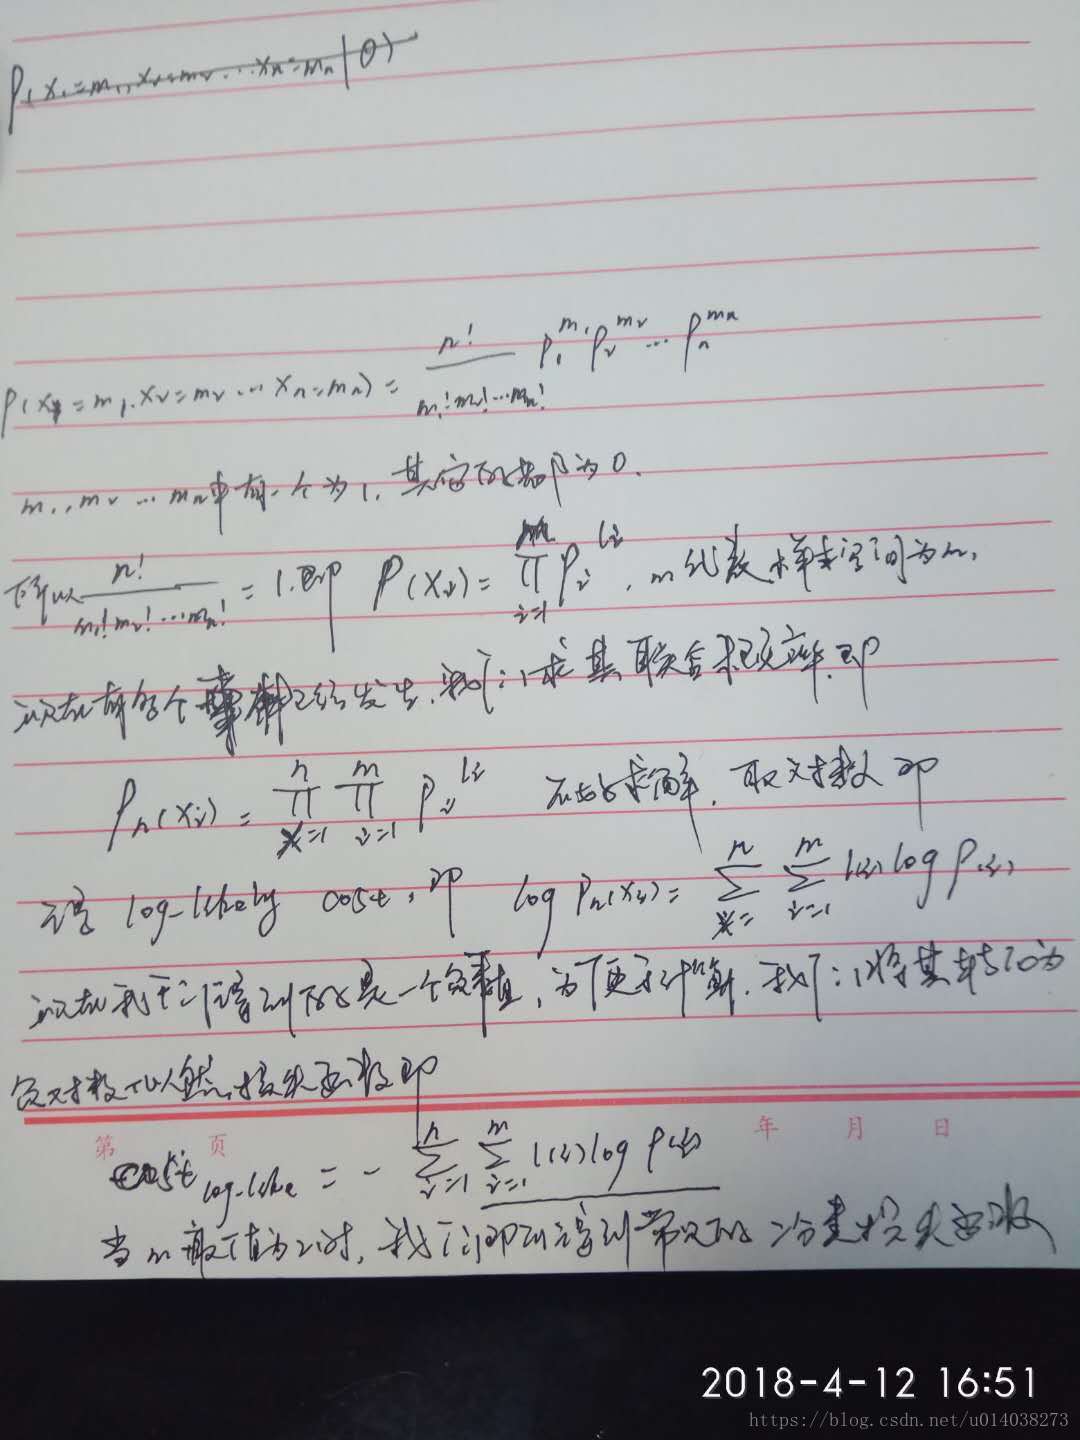 P(x₁=m₁, x₂=m₂...xₙ=mₙ|θ)
P(x₁=m₁.x₂=m₂...xₙ=mₙ)= n!/(m₁!m₂!...mₙ!) p₁^m₁ p₂^m₂ ... pₙ^mₙ
m₁,m₂...mₙ中有一个为1,其它的都为0.
所以 n!/(m₁!m₂!...mₙ!) = 1.即 P(xᵢ)= ∏_{i=1}^{m} pᵢ^{lᵢ}, m代表样本空间为m,
现在有n个 已经发生,我们求其联合概率.即
Pₙ(xᵢ)= ∏_{x=1}^{n} ∏_{i=1}^{m} pᵢ^{lᵢ} 求解,取对数即
得 log-likely cost,即 log Pₙ(xᵢ)= ∑^{n} ∑_{i=1}^{m} l(i) log P(i)
现在我们得到的是一个负数值,为了更 计算,我们将其转 为
负对数似然损失函数即
第 页 年 月 日
cost log-like = - ∑_{i=1}^{n} ∑_{i=1}^{m} l(i) log P(i)
当m取值为2时,我们即可得到常见的二分类损失函数
2018-4-12 16:51
https://blog.csdn.net/u014038273